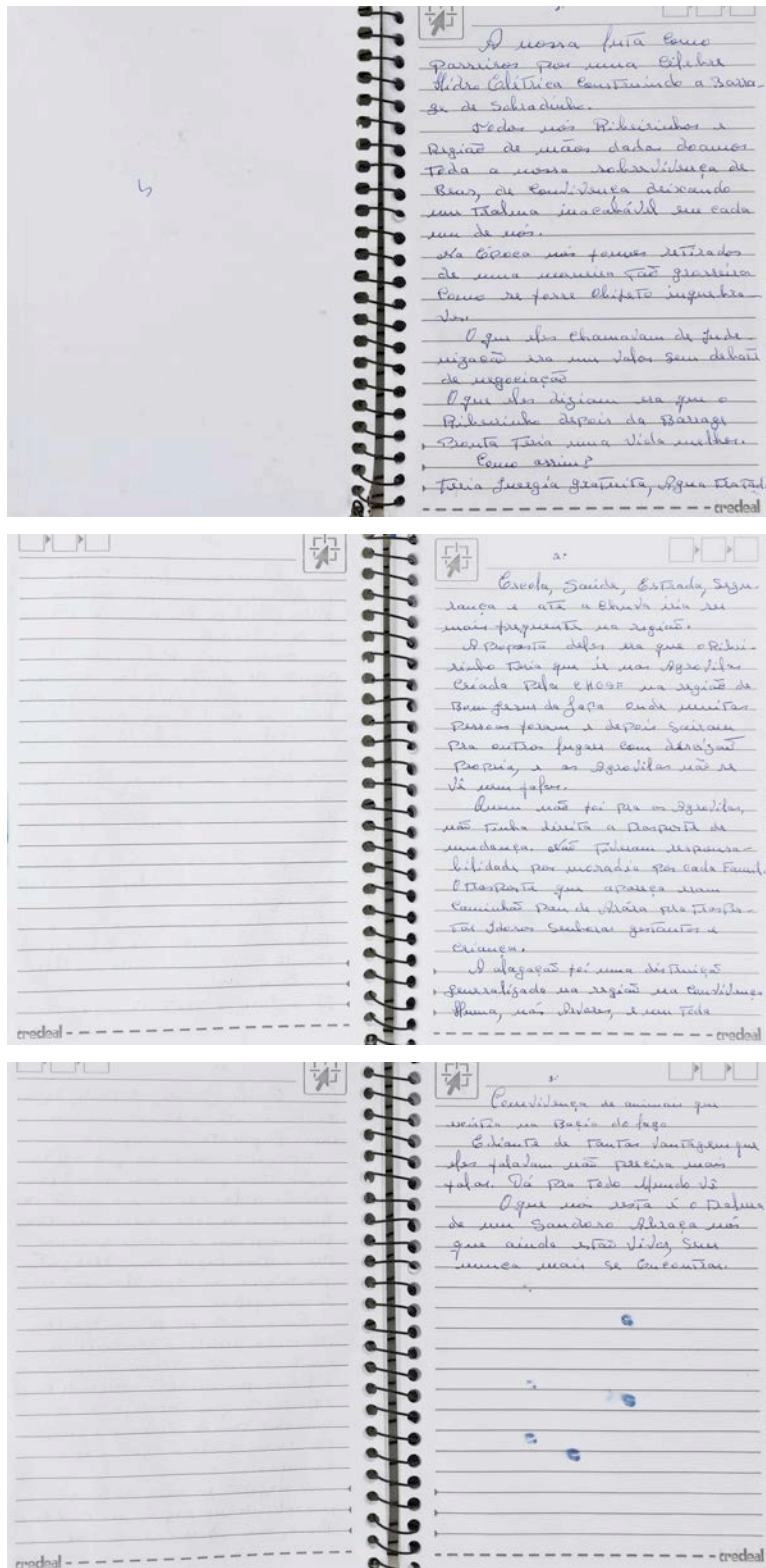 A nossa luta como
parseiros por uma Célebre
Hidro Elétrica Construindo a Barra-
ge de Sobradinho.
Todos nós Ribeirinhos e
Região de mãos dadas doamos
Toda a nossa sobrevivença de
Bens, de Convivença deixando
um Tralma inacabável em cada
um de nós.
Na Época nós fomos retirados
de uma maneira Tão grosseira
Como se fosse Objeto inquebra-
Vis.
O que eles chamavam de Inde-
nização era um Valor sem debate
de negociação
O que eles diziam era que o
Ribeirinho depois da Barrage
Pronta Teria uma Vida melhor.
Como assim?
Teria Energia gratuita, Agua Tratad
credeal
2.
Escola, Saúde, Estrada, Segu-
rança e até a Chuva iria ser
mais frequente na região.
A Proposta deles era que o Ribei-
rinho Teria que ir nas AgroVilas
Criada Pela CHESF na região de
Bom Jesus da Lapa onde muitas
Pessoas foram e depois Sairam
Pra outros lugares com
Propria, e as AgroVilas não se
Vê nem falar.
Quem não foi pra as AgroVilas,
não Tinha direito a Trasporte de
mudança. Não Tiveram responsa-
bilidade por moradia por cada Famil.
O Trasporte que apareça eram
Caminhão Pau de Arára pra Traspor-
Tar Idosos Senhoras gestantes e
Criança.
A alagação foi uma distruição
generalizada na região na Convivença
Huma, nas Arvores, e em Toda
credeal
credeal
3.
Convivença de animais que
existia na Bacia do lago
E diante de Tantas Vantagens que
eles falavam não precisa mais
falar. Dá pra Todo Mundo Vê
O que nos resta é o Tralma
de um Abraça nós
que ainda estão Vivos, Sem
nunca mais se Encontrar.
credeal
credeal